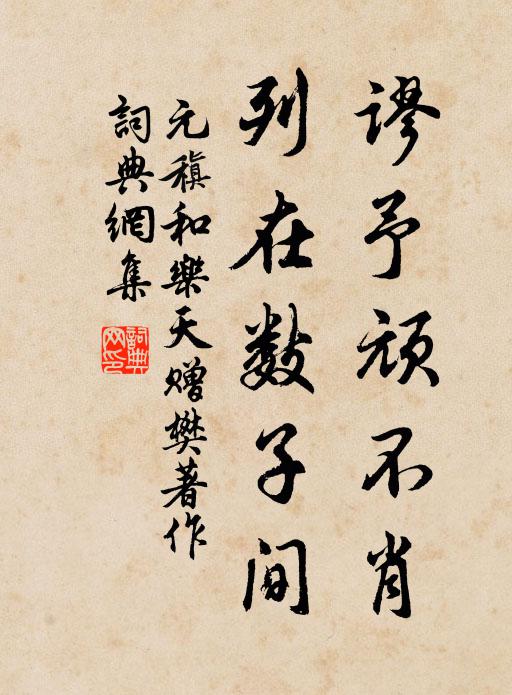 谬予顽不肖
列在数子间
元稹和樂天赠樊著作
詞典網集
詞典網印